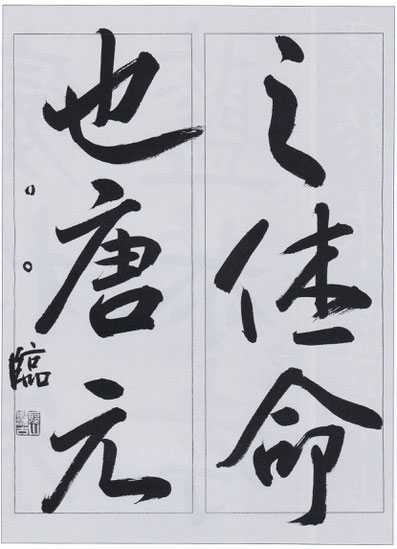 之休命
也唐元
○○臨